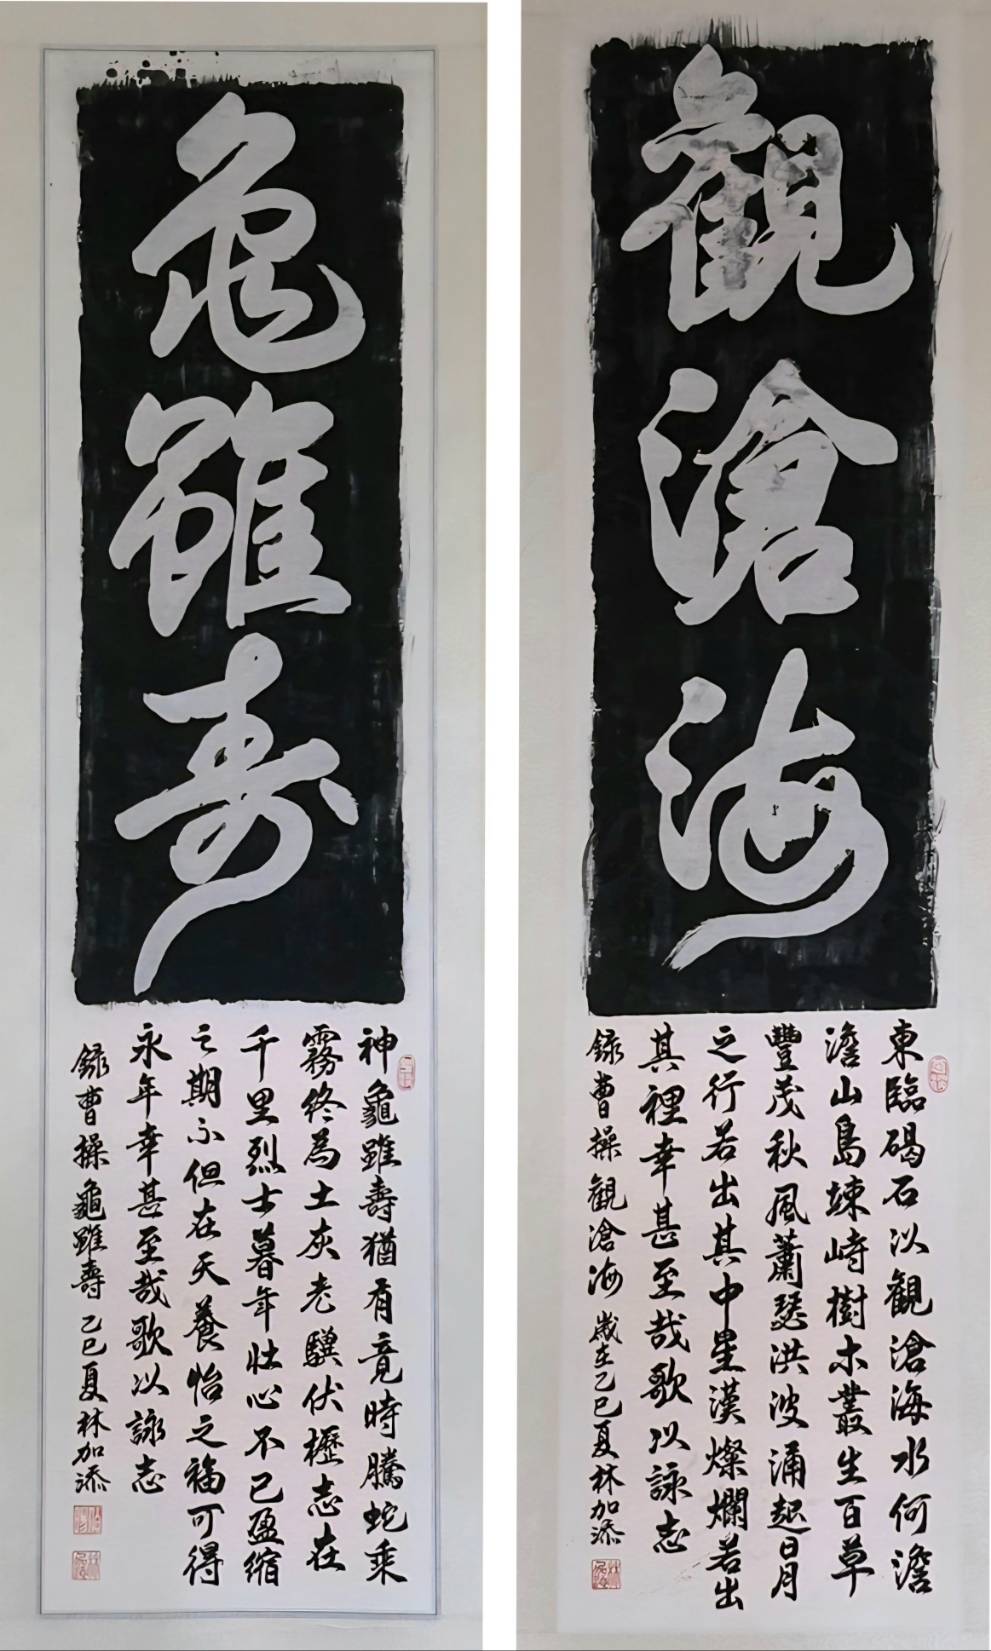 觀滄海
東臨碣石以觀滄海水何澹
澹山島竦峙樹木叢生百草
豐茂秋風蕭瑟洪波涌起日月
之行若出其中星漢燦爛若出
其裡幸甚至哉歌以詠志
錄曹操觀滄海 歲在乙巳夏林加添
龜雖壽
神龜雖壽猶有竟時騰蛇乘
霧終為土灰老驥伏櫪志在
千里烈士暮年壯心不已盈縮
之期不但在天養怡之福可得
永年幸甚至哉歌以詠志
錄曹操龜雖壽 乙巳夏林加添